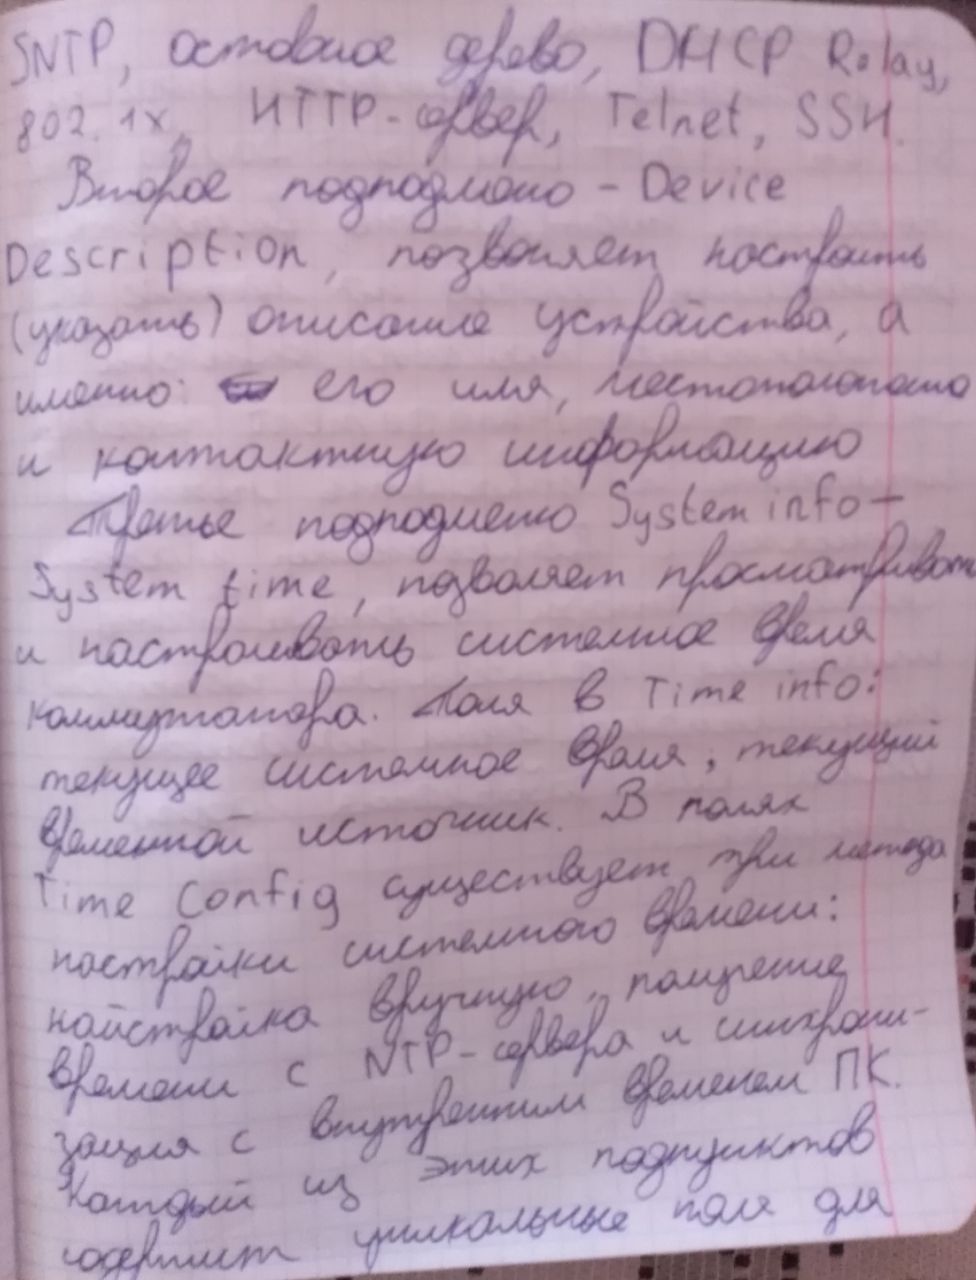 SNTP, остовное дерево, DHCP Relay,
802.1x, HTTP-сервер, Telnet, SSH.
Второе подподменю - Device
Description, позволяет настроить
(указать) описание устройства, а
именно: его имя, местоположение
и контактную информацию
Третье подподменю System info -
System time, позволяет просматривать
и настраивать системное время
коммутатора. Поля в Time info:
текущее системное время, текущий
временной источник. В полях
Time Config существует три метода
настройки системного времени:
найстройка вручную, получение
времени с NTP-сервера и синхрони-
зация с внутренним временем ПК.
Каждый из этих подпунктов
содержит уникальные поля для